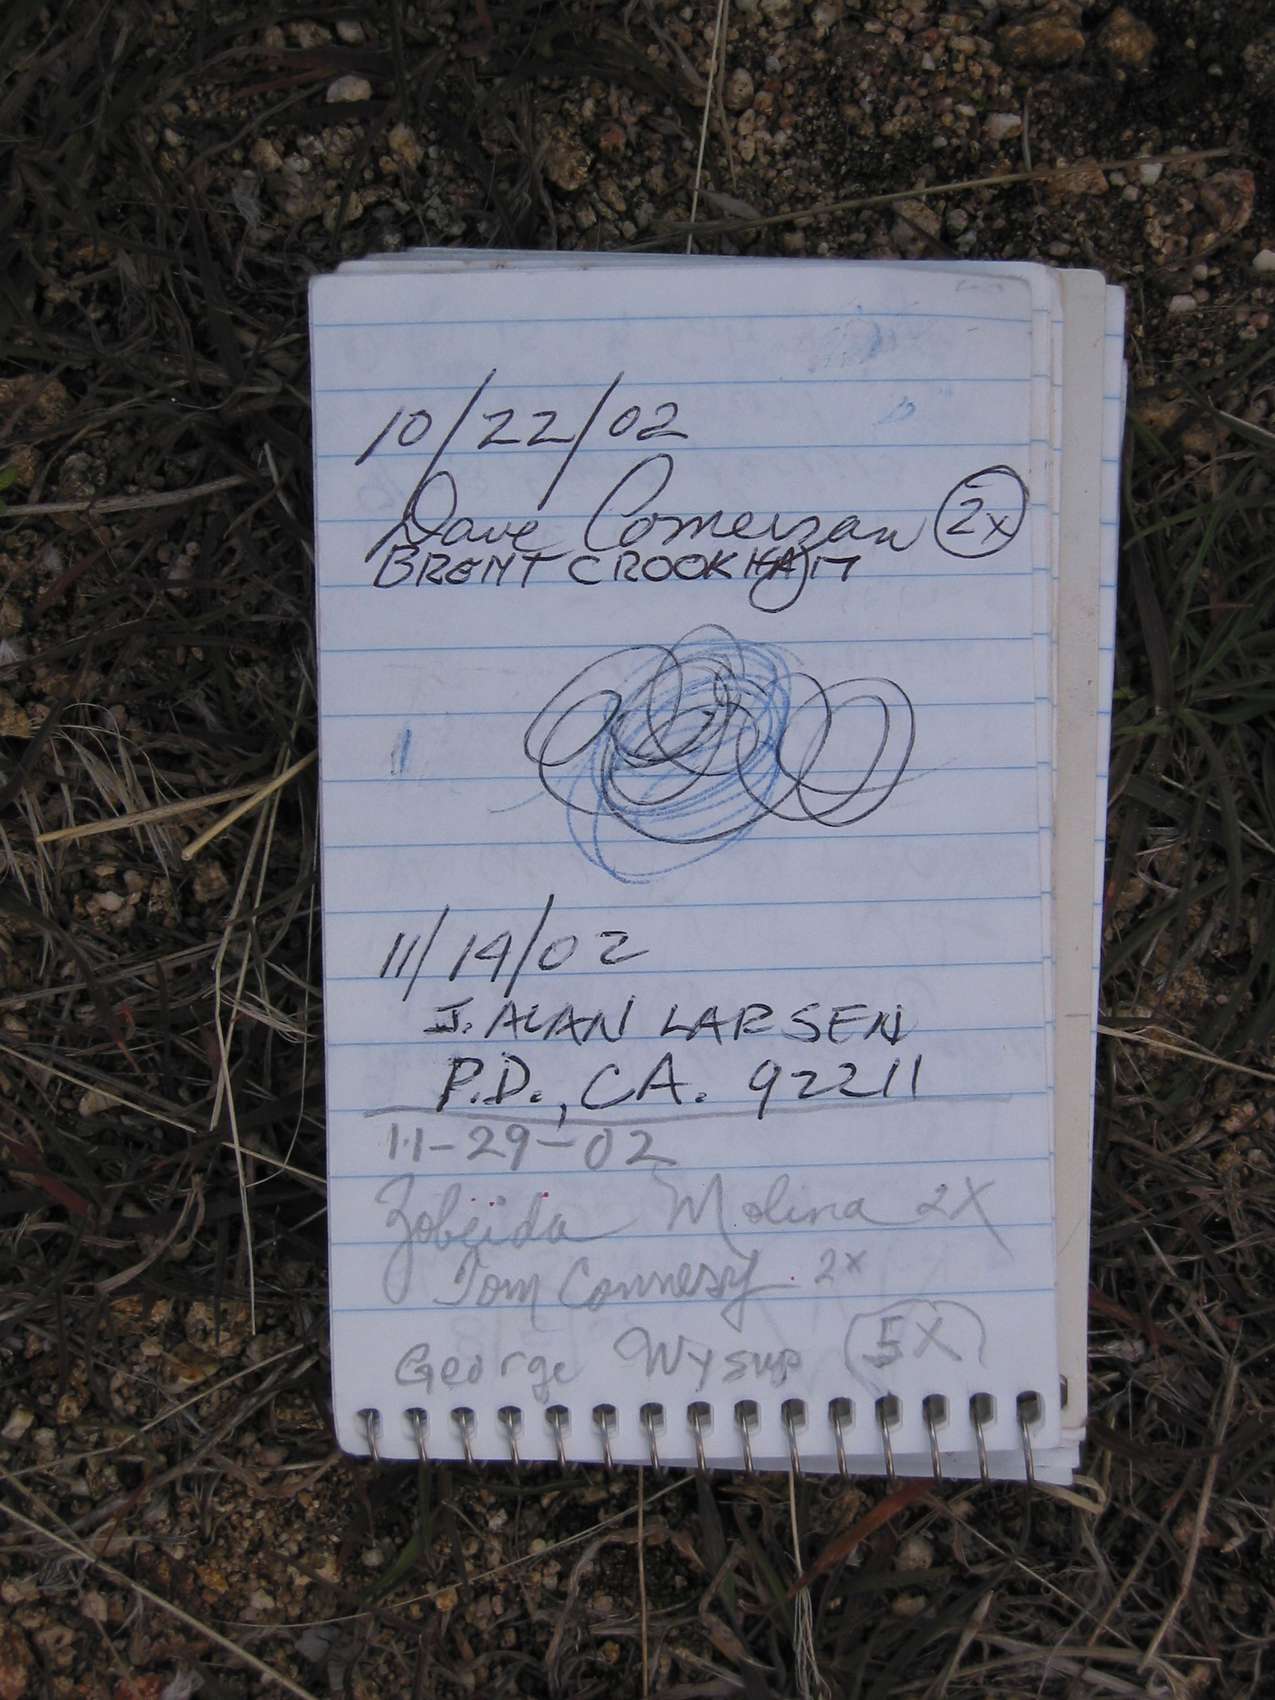 10/22/02
Dave Comerzan 2x
BRENT CROOKHAM
11/14/02
J. ALAN LARSEN
P.D., CA. 92211
11-29-02
Zobeida Molina 2X
Tom Connery 2x
George Wysup 5X